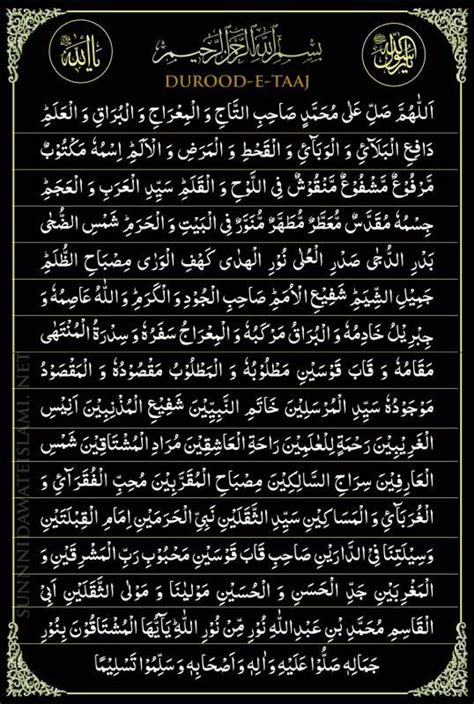 یا اللہ
بِسْمِ اللّٰهِ الرَّحْمٰنِ الرَّحِيْمِ
یا رسول اللہ
DUROOD-E-TAAJ
اَللّٰهُمَّ صَلِّ عَلٰى مُحَمَّدٍ صَاحِبِ التَّاجِ وَ الْمِعْرَاجِ وَ الْبُرَاقِ وَ الْعَلَمِؕ
دَافِعِ الْبَلَآئِ وَ الْوَبَآئِ وَ الْقَحْطِ وَ الْمَرَضِ وَ الْاَلَمِؕ اِسْمُهٗ مَكْتُوْبٌ
مَّرْفُوْعٌ مَّشْفُوْعٌ مَّنْقُوْشٌ فِى اللَّوْحِ وَ الْقَلَمِؕ سَيِّدِ الْعَرَبِ وَ الْعَجَمِؕ
جِسْمُهٗ مُقَدَّسٌ مُّعَطَّرٌ مُّطَهَّرٌ مُّنَوَّرٌ فِى الْبَيْتِ وَ الْحَرَمِؕ شَمْسِ الضُّحٰى
بَدْرِ الدُّجٰى صَدْرِ الْعُلٰى نُوْرِ الْهُدٰى كَهْفِ الْوَرٰى مِصْبَاحِ الظُّلَمِؕ
جَمِيْلِ الشِّيَمِؕ شَفِيْعِ الْاُمَمِؕ صَاحِبِ الْجُوْدِ وَ الْكَرَمِؕ وَ اللّٰهُ عَاصِمُهٗ وَ
جِبْرِيْلُ خَادِمُهٗ وَ الْبُرَاقُ مَرْكَبُهٗ وَ الْمِعْرَاجُ سَفَرُهٗ وَ سِدْرَةُ الْمُنْتَهٰى
مَقَامُهٗ وَ قَابَ قَوْسَيْنِ مَطْلُوْبُهٗ وَ الْمَطْلُوْبُ مَقْصُوْدُهٗ وَ الْمَقْصُوْدُ
مَوْجُوْدُهٗ سَيِّدِ الْمُرْسَلِيْنَ خَاتَمِ النَّبِيِّيْنَ شَفِيْعِ الْمُذْنِبِيْنَ اَنِيْسِ
الْغَرِيْبِيْنَ رَحْمَةٍ لِّلْعٰلَمِيْنَ رَاحَةِ الْعَاشِقِيْنَ مُرَادِ الْمُشْتَاقِيْنَ شَمْسِ
الْعَارِفِيْنَ سِرَاجِ السَّالِكِيْنَ مِصْبَاحِ الْمُقَرَّبِيْنَ مُحِبِّ الْفُقَرَآئِ وَ
الْغُرَبَآئِ وَ الْمَسَاكِيْنَ سَيِّدِ الثَّقَلَيْنِ نَبِيِّ الْحَرَمَيْنِ اِمَامِ الْقِبْلَتَيْنِ
وَسِيْلَتِنَا فِى الدَّارَيْنِ صَاحِبِ قَابَ قَوْسَيْنِ مَحْبُوْبِ رَبِّ الْمَشْرِقَيْنِ وَ
الْمَغْرِبَيْنِ جَدِّ الْحَسَنِ وَ الْحُسَيْنِ مَوْلٰينَا وَ مَوْلَى الثَّقَلَيْنِ اَبِى
الْقَاسِمِ مُحَمَّدِ بْنِ عَبْدِ اللّٰهِ نُوْرٍ مِّنْ نُوْرِ اللّٰهِؕ يٰاَيُّهَا الْمُشْتَاقُوْنَ بِنُوْرِ
جَمَالِهٖ صَلُّوْا عَلَيْهِ وَ اٰلِهٖ وَ اَصْحَابِهٖ وَ سَلِّمُوْا تَسْلِيْمًا
SUNNNIDAWATEISLAMI. NET